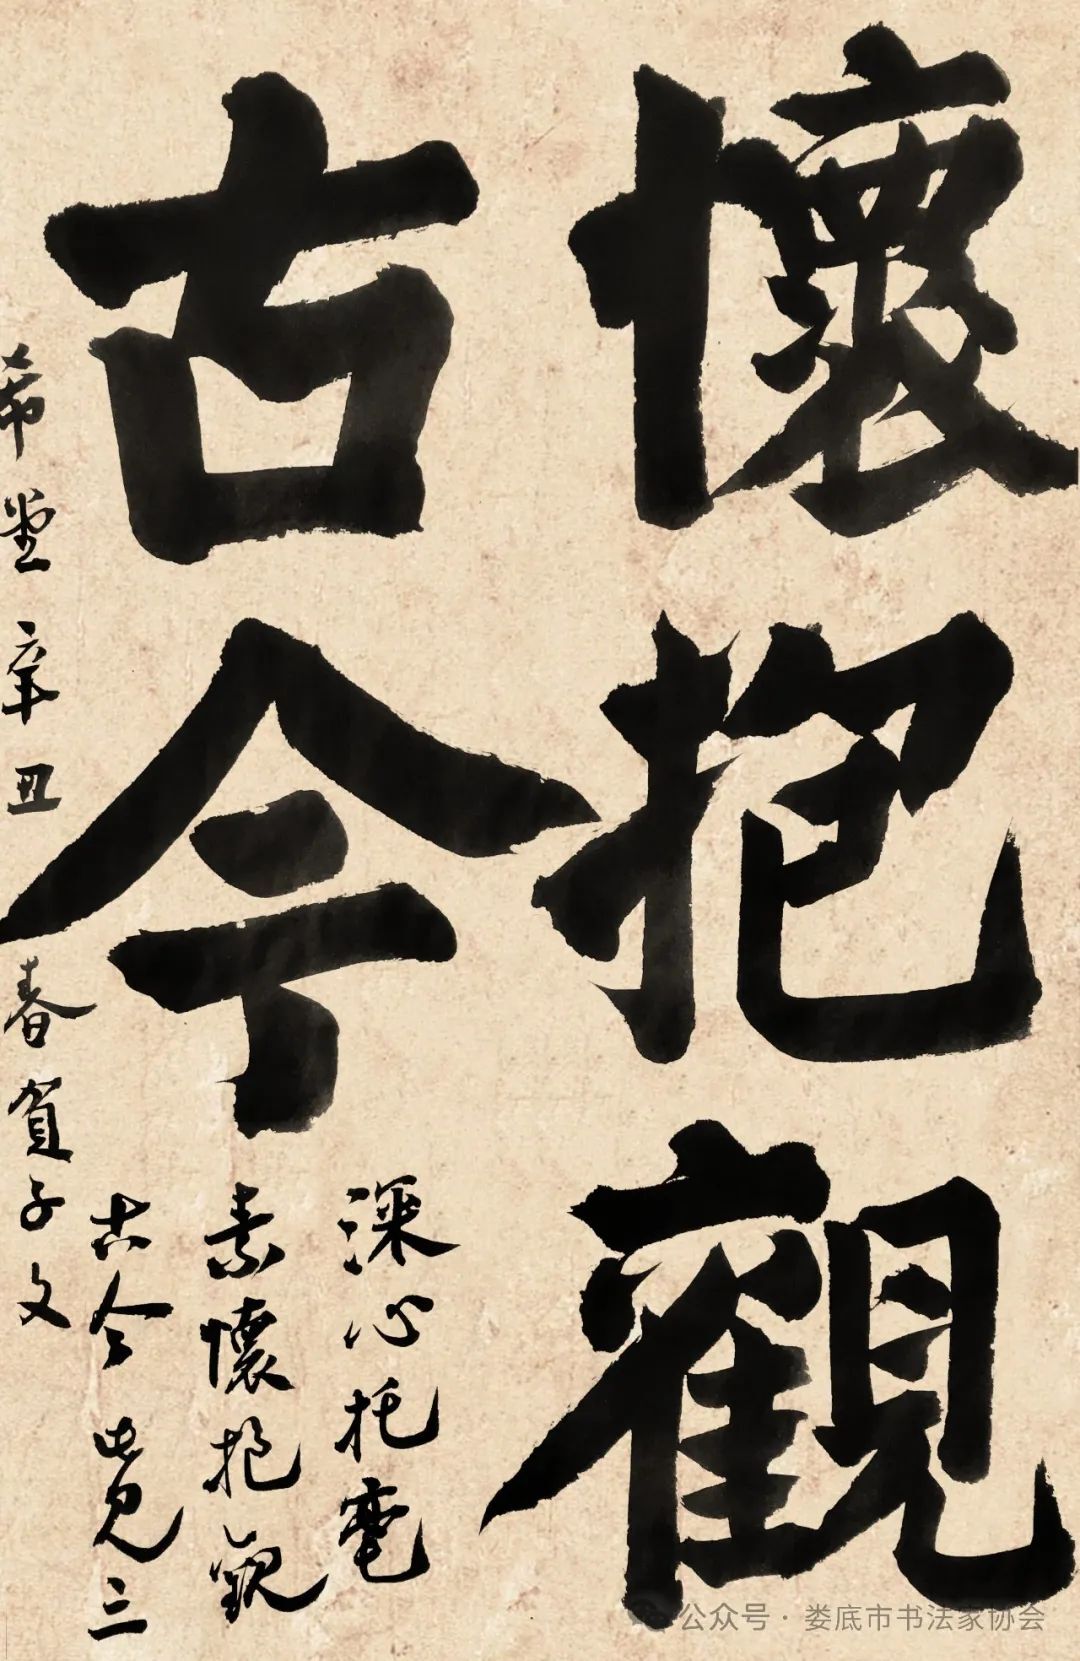 懷抱觀
古今
深心托毫
素懷抱觀
古今此見三
希堂辛丑春賀子文
公众号 · 娄底市书法家协会